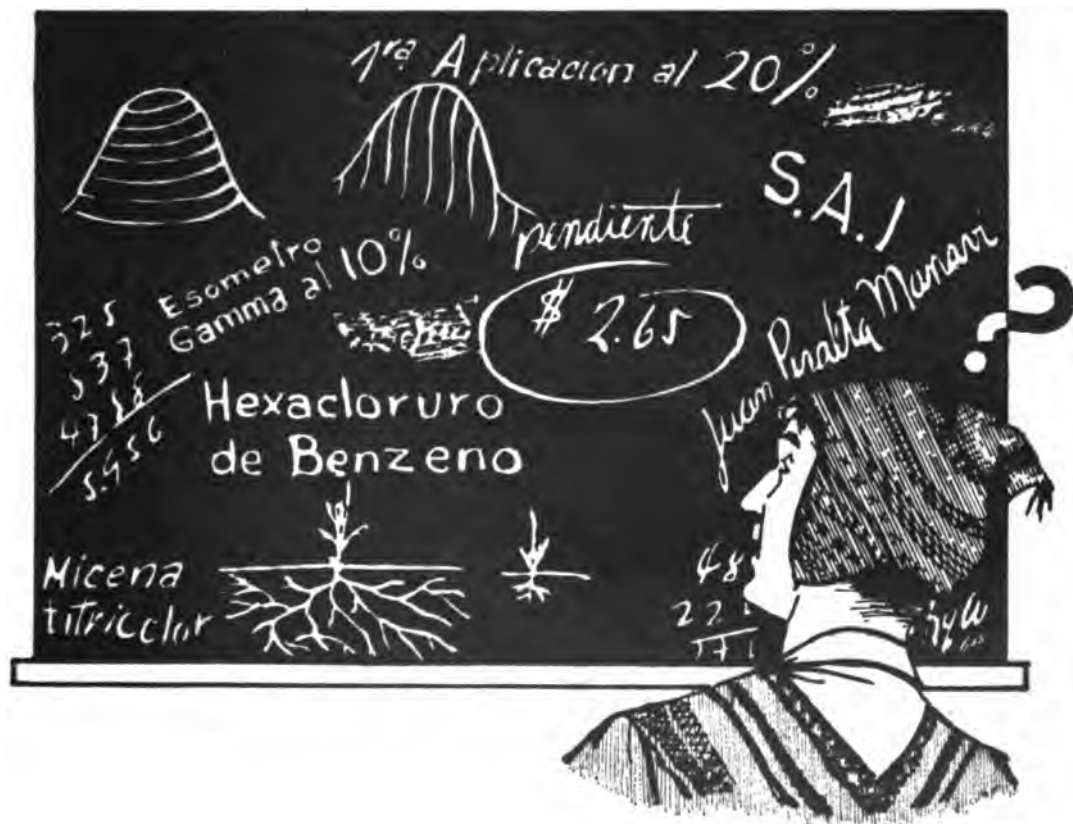 1ra Aplicacion al 20%
S.A.I
pendiente
Esometro
Gamma al 10%
$ 2.65
Juan Piralita Mamani
325
537
4788
5.956
Hexacloruro
de Benzeno
Micena
titricolor
48
22
?